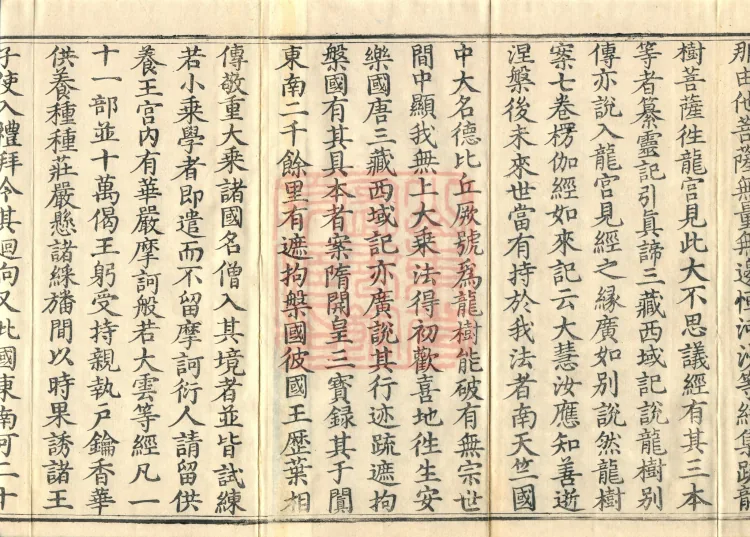 那由他菩薩無量無邊
樹菩薩徃龍宮見此大不思議經有其三本
等者纂靈記引眞諦三藏西域記說龍樹別
傳亦說入龍宮見經之緣廣如別說然龍樹
案七卷楞伽經如來記云大慧汝應知善逝
涅槃後未來世當有持於我法者南天竺國
中大名德比丘厥號爲龍樹能破有無宗世
間中顯我無上大乘法得初歡喜地徃生安
樂國唐三藏西域記亦廣說其行迹疏遮拘
槃國有其具本者案隋開皇三寶録其于闐
東南二千餘里有遮拘槃國彼國王歴葉相
傳敬重大乘諸國名僧入其境者並皆試練
若小乘學者即遣而不留摩訶衍人請留供
養王宮內有華嚴摩訶般若大雲等經凡一
十一部並十萬偈王躬受持親執戶鑰香華
供養種種莊嚴懸諸綵旛間以時果誘諸王
子使入禮拜令其迴向又此國東南可二十